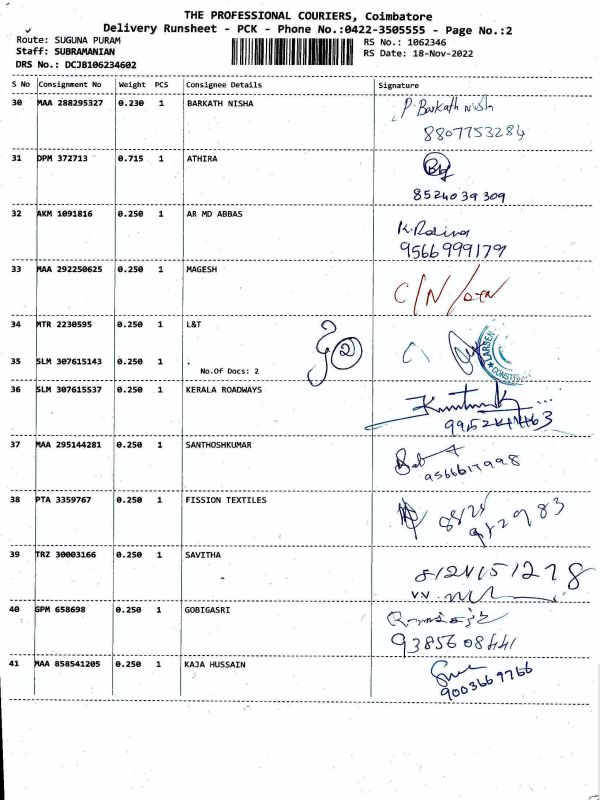 THE PROFESSIONAL COURIERS, Coimbatore
Delivery Runsheet - PCK - Phone No.:0422-3505555 - Page No.:2
Route: SUGUNA PURAM
RS No.: 1062346
Staff: SUBRAMANIAN
RS Date: 18-Nov-2022
DRS No.: DCJB106234602
S No Consignment No Weight PCS Consignee Details Signature
30 MAA 288295327 0.230 1 BARKATH NISHA P. Barkath nisha
8807753284
31 DPM 372713 0.715 1 ATHIRA
8524039309
32 AKM 1091816 0.250 1 AR MD ABBAS
9566999179
33 MAA 292250625 0.250 1 MAGESH C/N/
34 MTR 2230595 0.250 1 L&T 2
LARSEN
CONSTRUC
35 SLM 307615143 0.250 1
No.Of Docs: 2
36 SLM 307615537 0.250 1 KERALA ROADWAYS
37 MAA 295144281 0.250 1 SANTHOSHKUMAR
38 PTA 3359767 0.250 1 FISSION TEXTILES
39 TRZ 30003166 0.250 1 SAVITHA
40 GPM 658698 0.250 1 GOBIGASRI
9385608441
41 MAA 858541205 0.250 1 KAJA HUSSAIN
9003669766